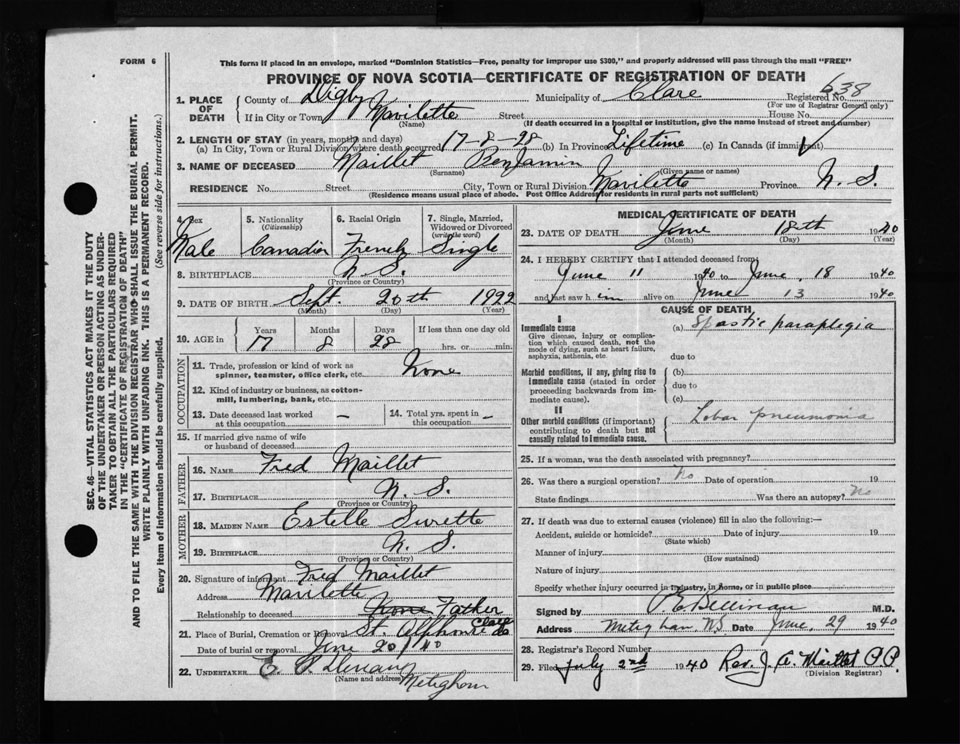 FORM 6
This form if placed in an envelope, marked "Dominion Statistics—Free, penalty for improper use $300," and properly addressed will pass through the mail "FREE"
PROVINCE OF NOVA SCOTIA—CERTIFICATE OF REGISTRATION OF DEATH
638
1. PLACE OF DEATH
County of Digby Municipality of Clare Registered No.
(For use of Registrar General only)
If in City or Town Mavilette Street House No.
(Name) (If death occurred in a hospital or institution, give the name instead of street and number)
2. LENGTH OF STAY (in years, months and days)
(a) In City, Town or Rural Division where death occurred 17-8-28 (b) In Province Lifetime (c) In Canada (if immigrant)
3. NAME OF DECEASED Maillet Benjamin
(Surname) (Given name or names)
RESIDENCE No. Street City, Town or Rural Division Mavilette Province N. S.
(Residence means usual place of abode. Post Office Address for residents in rural parts not sufficient)
SEC. 46—VITAL STATISTICS ACT MAKES IT THE DUTY
OF THE UNDERTAKER OR PERSON ACTING AS UNDER-
TAKER TO OBTAIN ALL THE PARTICULARS REQUIRED
IN THE "CERTIFICATE OF REGISTRATION OF DEATH"
AND TO FILE THE SAME WITH THE DIVISION REGISTRAR WHO SHALL ISSUE THE BURIAL PERMIT.
WRITE PLAINLY WITH UNFADING INK. THIS IS A PERMANENT RECORD.
Every item of Information should be carefully supplied. (See reverse side for instructions.)
4. Sex 5. Nationality (Citizenship) 6. Racial Origin 7. Single, Married, Widowed or Divorced (write the word)
Male Canadian French Single
8. BIRTHPLACE N. S.
(Province or Country)
9. DATE OF BIRTH Sept. 20th 1922
(Month) (Day) (Year)
10. AGE in Years Months Days If less than one day old
17 8 28 hrs. or min.
OCCUPATION
11. Trade, profession or kind of work as spinner, teamster, office clerk, etc. None
12. Kind of industry or business, as cotton-mill, lumbering, bank, etc.
13. Date deceased last worked at this occupation — 14. Total yrs. spent in this occupation —
15. If married give name of wife or husband of deceased
FATHER
16. NAME Fred Maillet
17. BIRTHPLACE N. S.
(Province or Country)
MOTHER
18. MAIDEN NAME Estelle Surette
19. BIRTHPLACE N. S.
(Province or Country)
20. Signature of informant Fred Maillet
Address Mavilette
Relationship to deceased None Father
21. Place of Burial, Cremation or Removal St. Alphonse Clare
Date of burial or removal June 20/40
22. UNDERTAKER E. P.
(Name and address) Meteghan
MEDICAL CERTIFICATE OF DEATH
23. DATE OF DEATH June 18th 1940
(Month) (Day) (Year)
24. I HEREBY CERTIFY that I attended deceased from
June 11 1940 to June 18 1940
and last saw him alive on June 13 1940
CAUSE OF DEATH
I
Immediate cause (a) Spastic paraplegia
Give disease, injury or complication which caused death, not the mode of dying, such as heart failure, asphyxia, asthenia, etc.
due to
Morbid conditions, if any, giving rise to immediate cause (stated in order proceeding backwards from immediate cause).
(b)
due to
(c)
II
Other morbid conditions (if important) contributing to death but not causally related to immediate cause.
Lobar pneumonia
25. If a woman, was the death associated with pregnancy?
26. Was there a surgical operation? No Date of operation 19
State findings Was there an autopsy? No
27. If death was due to external causes (violence) fill in also the following:—
Accident, suicide or homicide? Date of injury 19
(State which)
Manner of injury
(How sustained)
Nature of injury
Specify whether injury occurred in industry, in home, or in public place
Signed by P E Belliveau M.D.
Address Meteghan, NS Date June, 29 1940
28. Registrar's Record Number
29. Filed July 2nd 1940 Rev. J. A. Maillet P.P.
(Division Registrar)